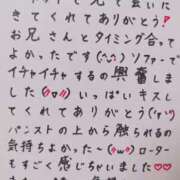 来てくれてありがとう!
お兄さんとタイミング合って
よかったです(^^) ソファーで
イチャイチャするの興奮し
ました(〃o〃) いっぱいキスし
てくれてありがとう(
パンストの上から触られるの
気持ちよかった〜(〃ω〃) ローター
もすごく感じちゃいました♡